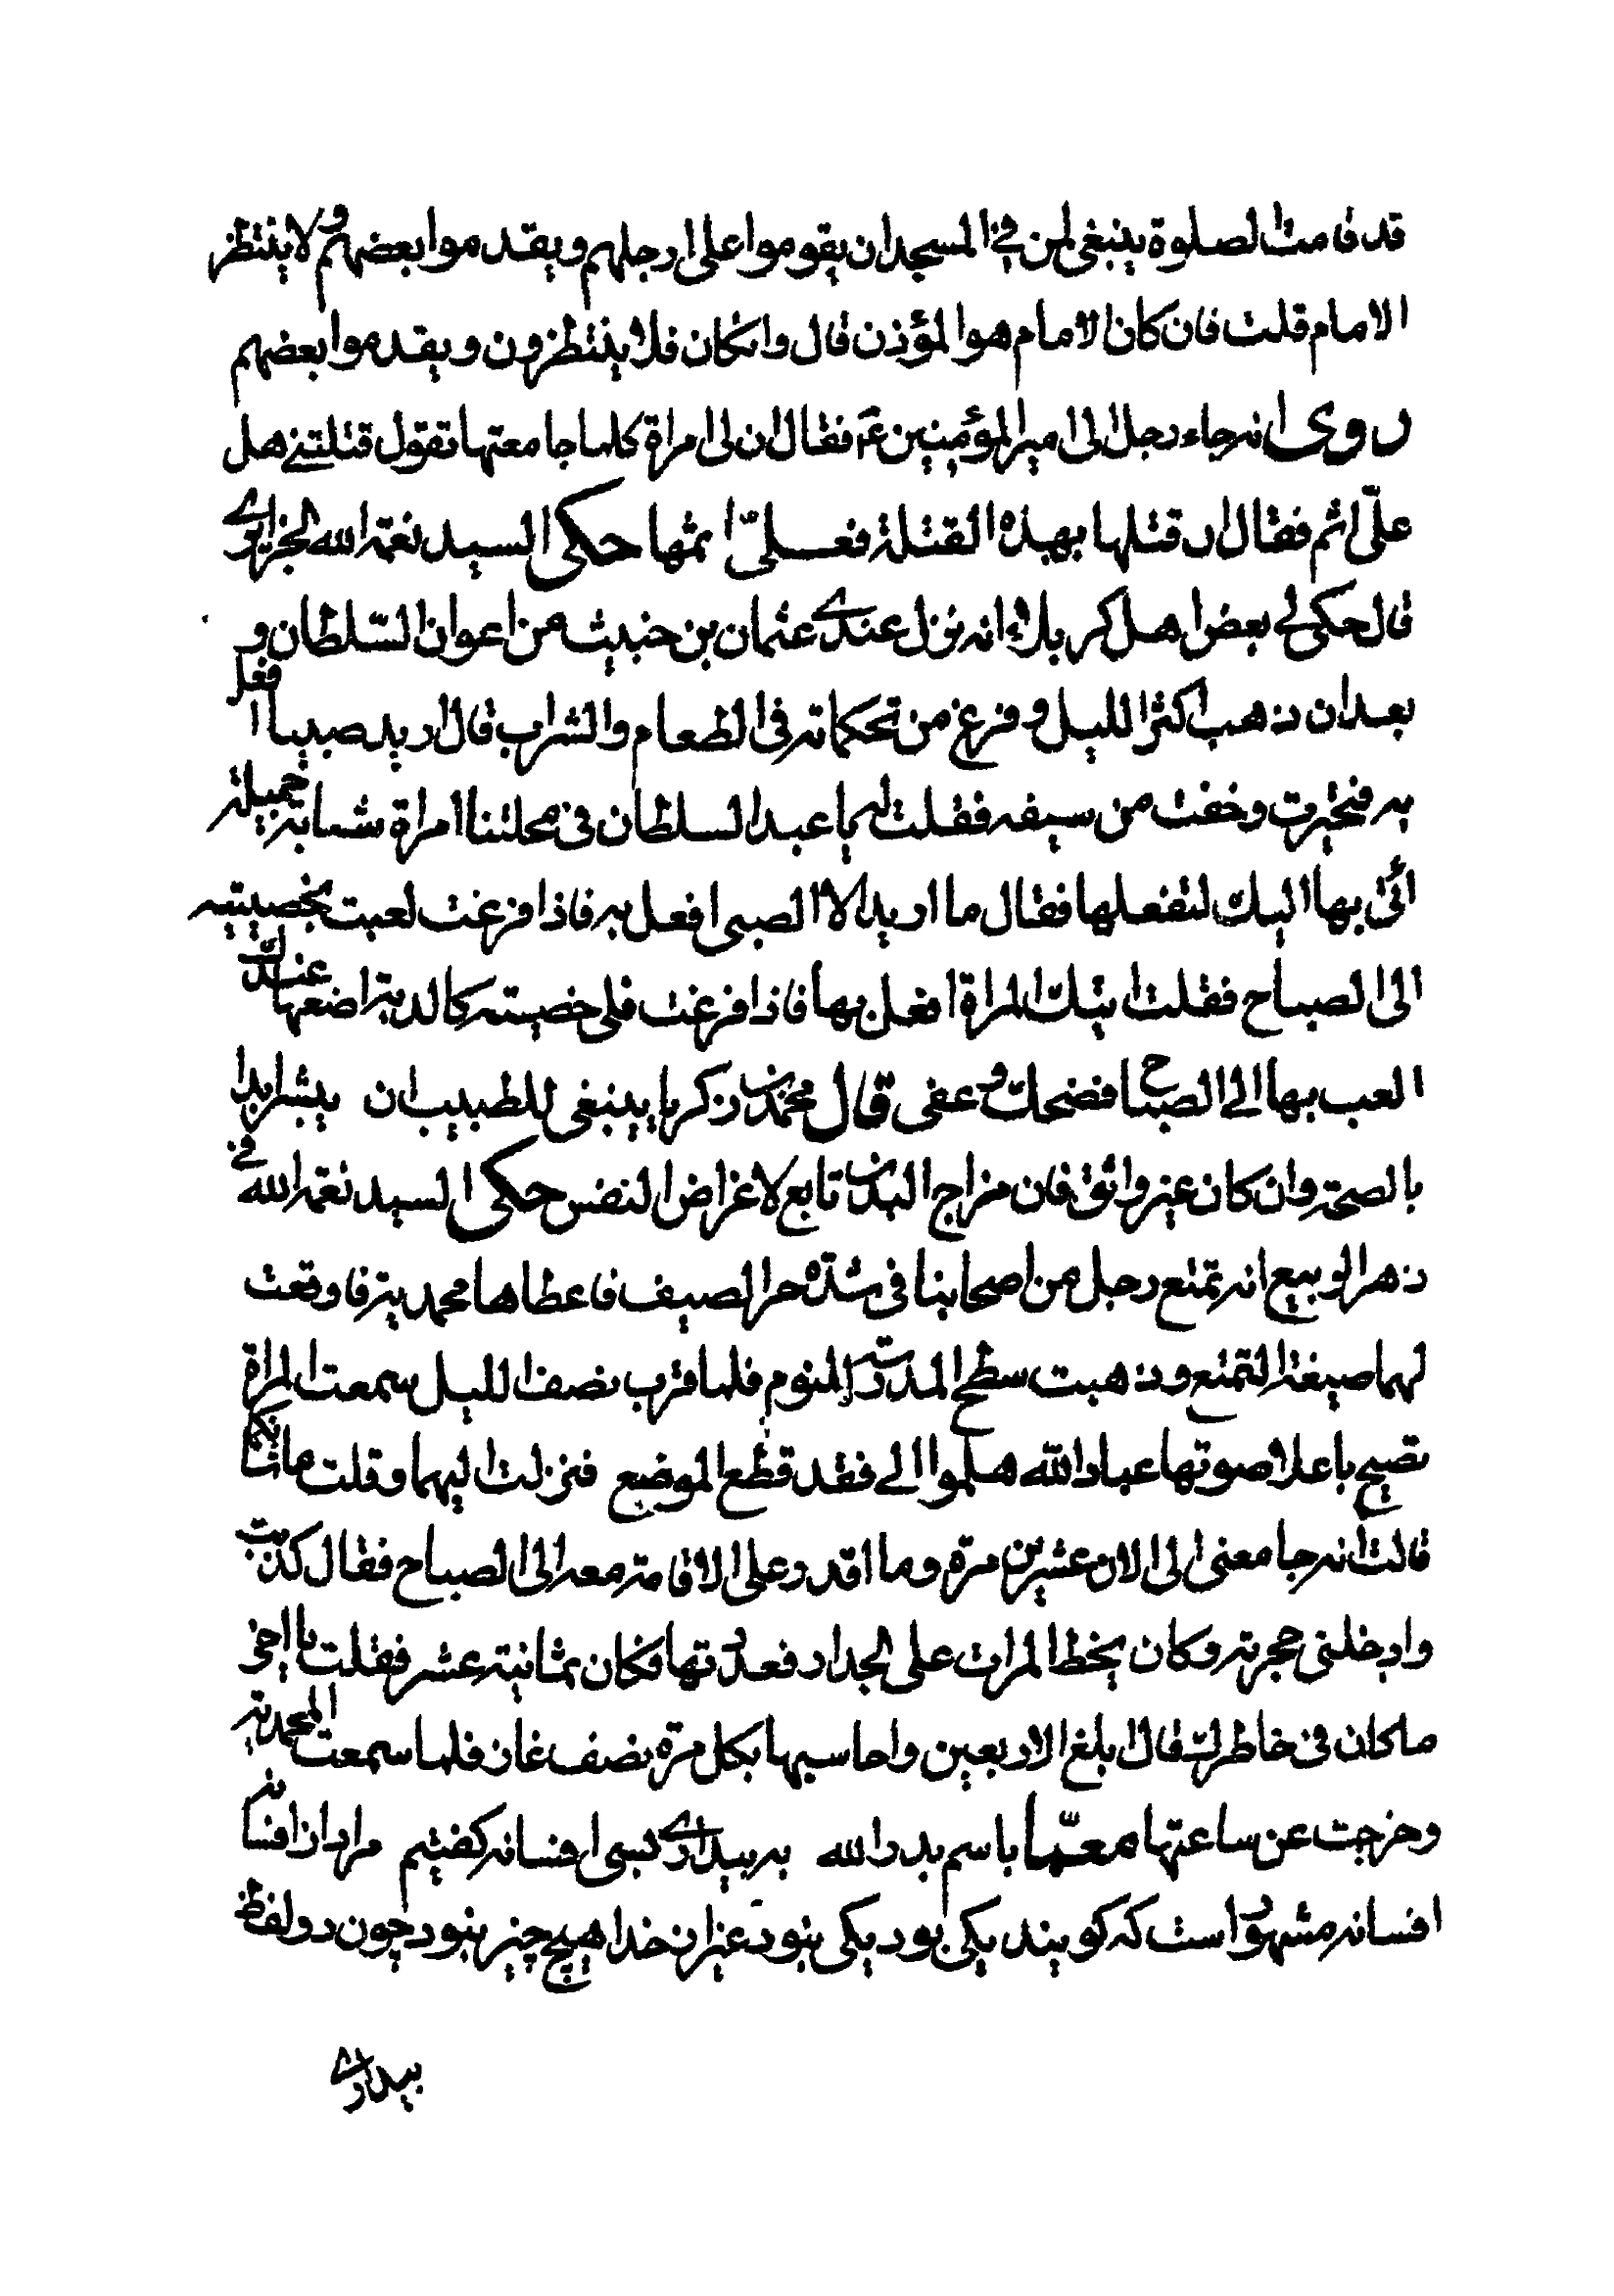 قد قامت الصلوة ينبغى لمن فى المسجد ان يقوموا على ارجلهم و يقدموا بعضهم و لا ينتظر
الامام قلت فان كان الامام هو المؤذن قال و انكان فلا ينتظرون و يقدموا بعضهم
روى انه جاء رجل الى امير المؤمنين ع فقال ان لى امراة كلما جامعتها تقول قتلتنى هل
علىّ اثم فقال اقتلها بهذه القتلة فعلىّ اثمها حكى السيد نعمة الله الجزايرى
قال حكى لى بعض اهل كربلاء انه نزل عندى عثمان بن خبيثه من اعوان السّلطان و
بعد ان ذهب اكثر الليل و فرغ من تحكماته فى الطعام و الشراب قال اريد صبيا افعل
به فتحيرت و خفت من سيفه فقلت له يا عبد السلطان فى محلتنا امراة شابة جميلة
اتى بها اليك لتفعلها فقال ما اريد الا الصبى افعل به فاذا فرغت لعبت بخصيتيه
الى الصباح فقلت ايتك المراة افعل بها فاذا فرغت فلى خصيته كالدبة اضعها عندك
العب بها الى الصباح فضحك و عفى قال محمد بن زكريا ينبغى للطبيب ان يبشر ابدا
بالصحة و ان كان غير واثق فان مزاج البدن تابع لاغراض النفس حكى السيد نعمة الله فى
زهر الربيع انه تمتع رجل من اصحابنا فى شدة حر الصيف فاعطاها محمدية فاوقعت
لهما صيغة التمتع و ذهبت سطح المدرسة للنوم فلما قرب نصف الليل سمعت المراة
تصيح باعلا صوتها عباد الله هلموا الى فقد قطع الموضع فنزلت اليهما و قلت ما شانكما
قالت انه جامعنى الى الان عشرين مرة و ما اقدر على الاقامة معه الى الصباح فقال كذبت
و ادخلنى حجرته و كان يخط المرات على الجدار فعددتها فكان ثمانية عشر فقلت يا اخى
ما كان فى خاطرك قال ابلغ الاربعين و احاسبها بكل مرة نصف غاز فلما سمعت المحمدية
و خرجت عن ساعتها معمّا باسم بدر الله به بيدارى بسى افسانه كفتيم مراد از افسانه
افسانه مشهور است كه كويند يكى بود يكى نبود غير از خدا هيچ چيز نبود چون دو لفظ
بيدارى